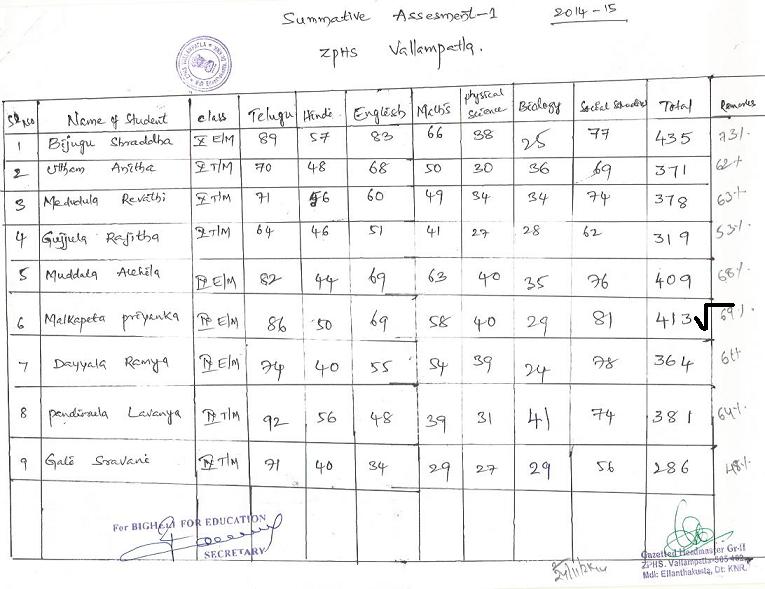 Summative Assesment-1 2014-15
ZPHS Vallampatla.
Sl No Name of Student class Telugu Hindi English Maths physical science Biology Social Studies Total Remarks
1 Bijugu Shraddha X E/M 89 57 83 66 38 25 77 435 73%
2 Utham Anitha X T/M 70 48 68 50 30 36 69 371 62%
3 Medudula Revathi X T/M 71 56 60 49 34 34 74 378 63%
4 Gujjula Rajitha X T/M 64 46 51 41 27 28 62 319 53%
5 Muddala Akhila IX E/M 82 44 69 63 40 35 76 409 68%
6 Malkapeta priyanka IX E/M 86 50 69 58 40 29 81 413 √ 69%
7 Dayyala Ramya IX E/M 74 40 55 54 39 24 78 364 61%
8 pendirula Lavanya IX T/M 92 56 48 39 31 41 74 381 64%
9 Gale Sravani IX T/M 71 40 34 29 27 29 56 286 48%
For BIGHELP FOR EDUCATION
SECRETARY
Gazetted Headmaster Gr-II
ZPHS. Vallampatla-505 402
Mdl: Ellanthakunta, Dt: KNR.